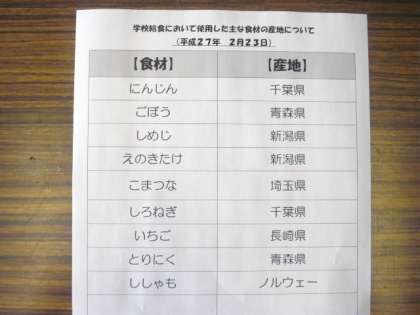 学校給食において使用した主な食材の産地について
(平成27年 2月23日)
【食材】 【産地】
にんじん 千葉県
ごぼう 青森県
しめじ 新潟県
えのきたけ 新潟県
こまつな 埼玉県
しろねぎ 千葉県
いちご 長崎県
とりにく 青森県
ししゃも ノルウェー